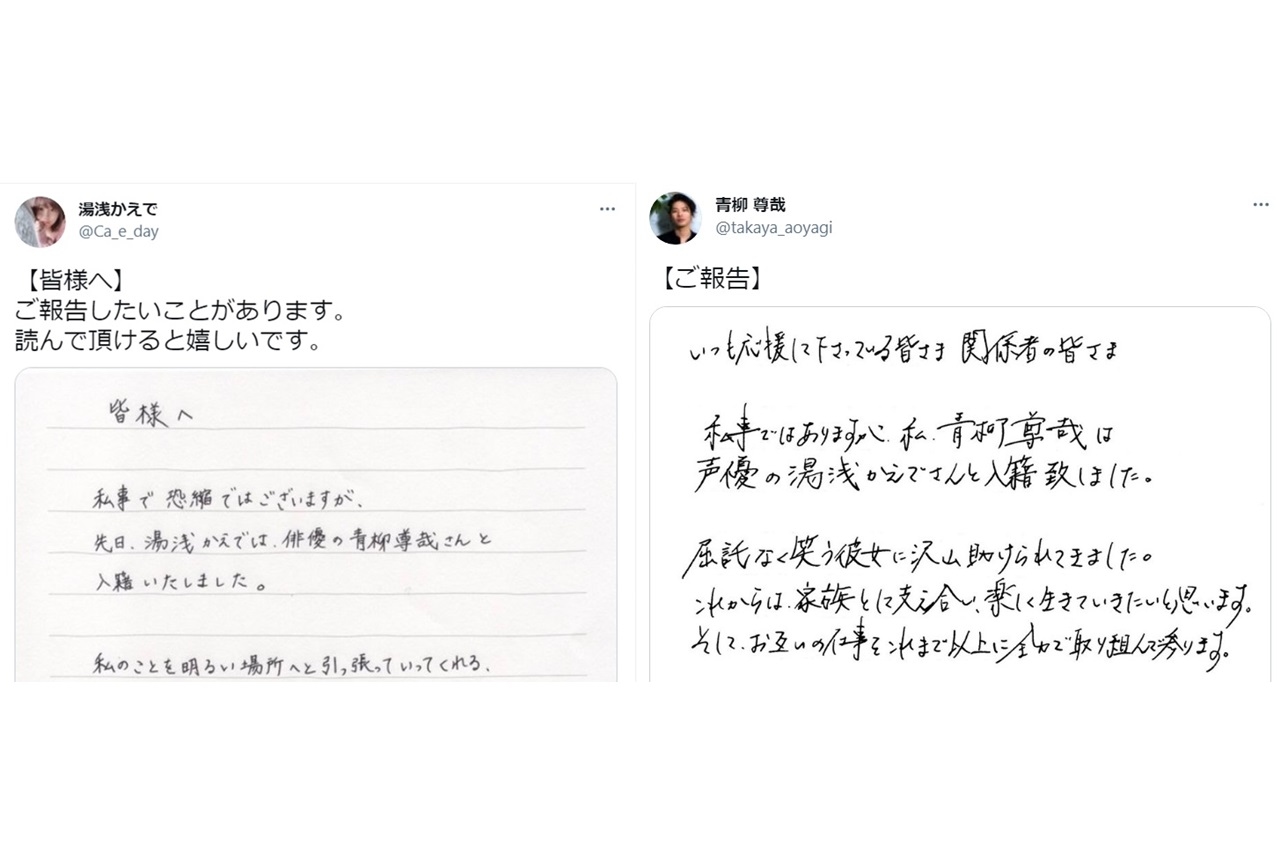 湯浅かえで
@Ca_e_day
【皆様へ】
ご報告したいことがあります。
読んで頂けると嬉しいです。
皆様へ
私事で恐縮ではございますが、
先日、湯浅かえでは、俳優の青柳尊哉さんと
入籍いたしました。
私のことを明るい場所へと引っ張っていってくれる、
青柳 尊哉
@takaya_aoyagi
【ご報告】
いつも応援して下さっている皆さま 関係者の皆さま
私事ではありますが、私、青柳尊哉は
声優の湯浅かえでさんと入籍致しました。
屈託なく笑う彼女に沢山助けられてきました。
これからは、家族として支え合い、楽しく生きていきたいと思います。
そして、お互いの仕事をこれまで以上に全力で取り組んで参ります。